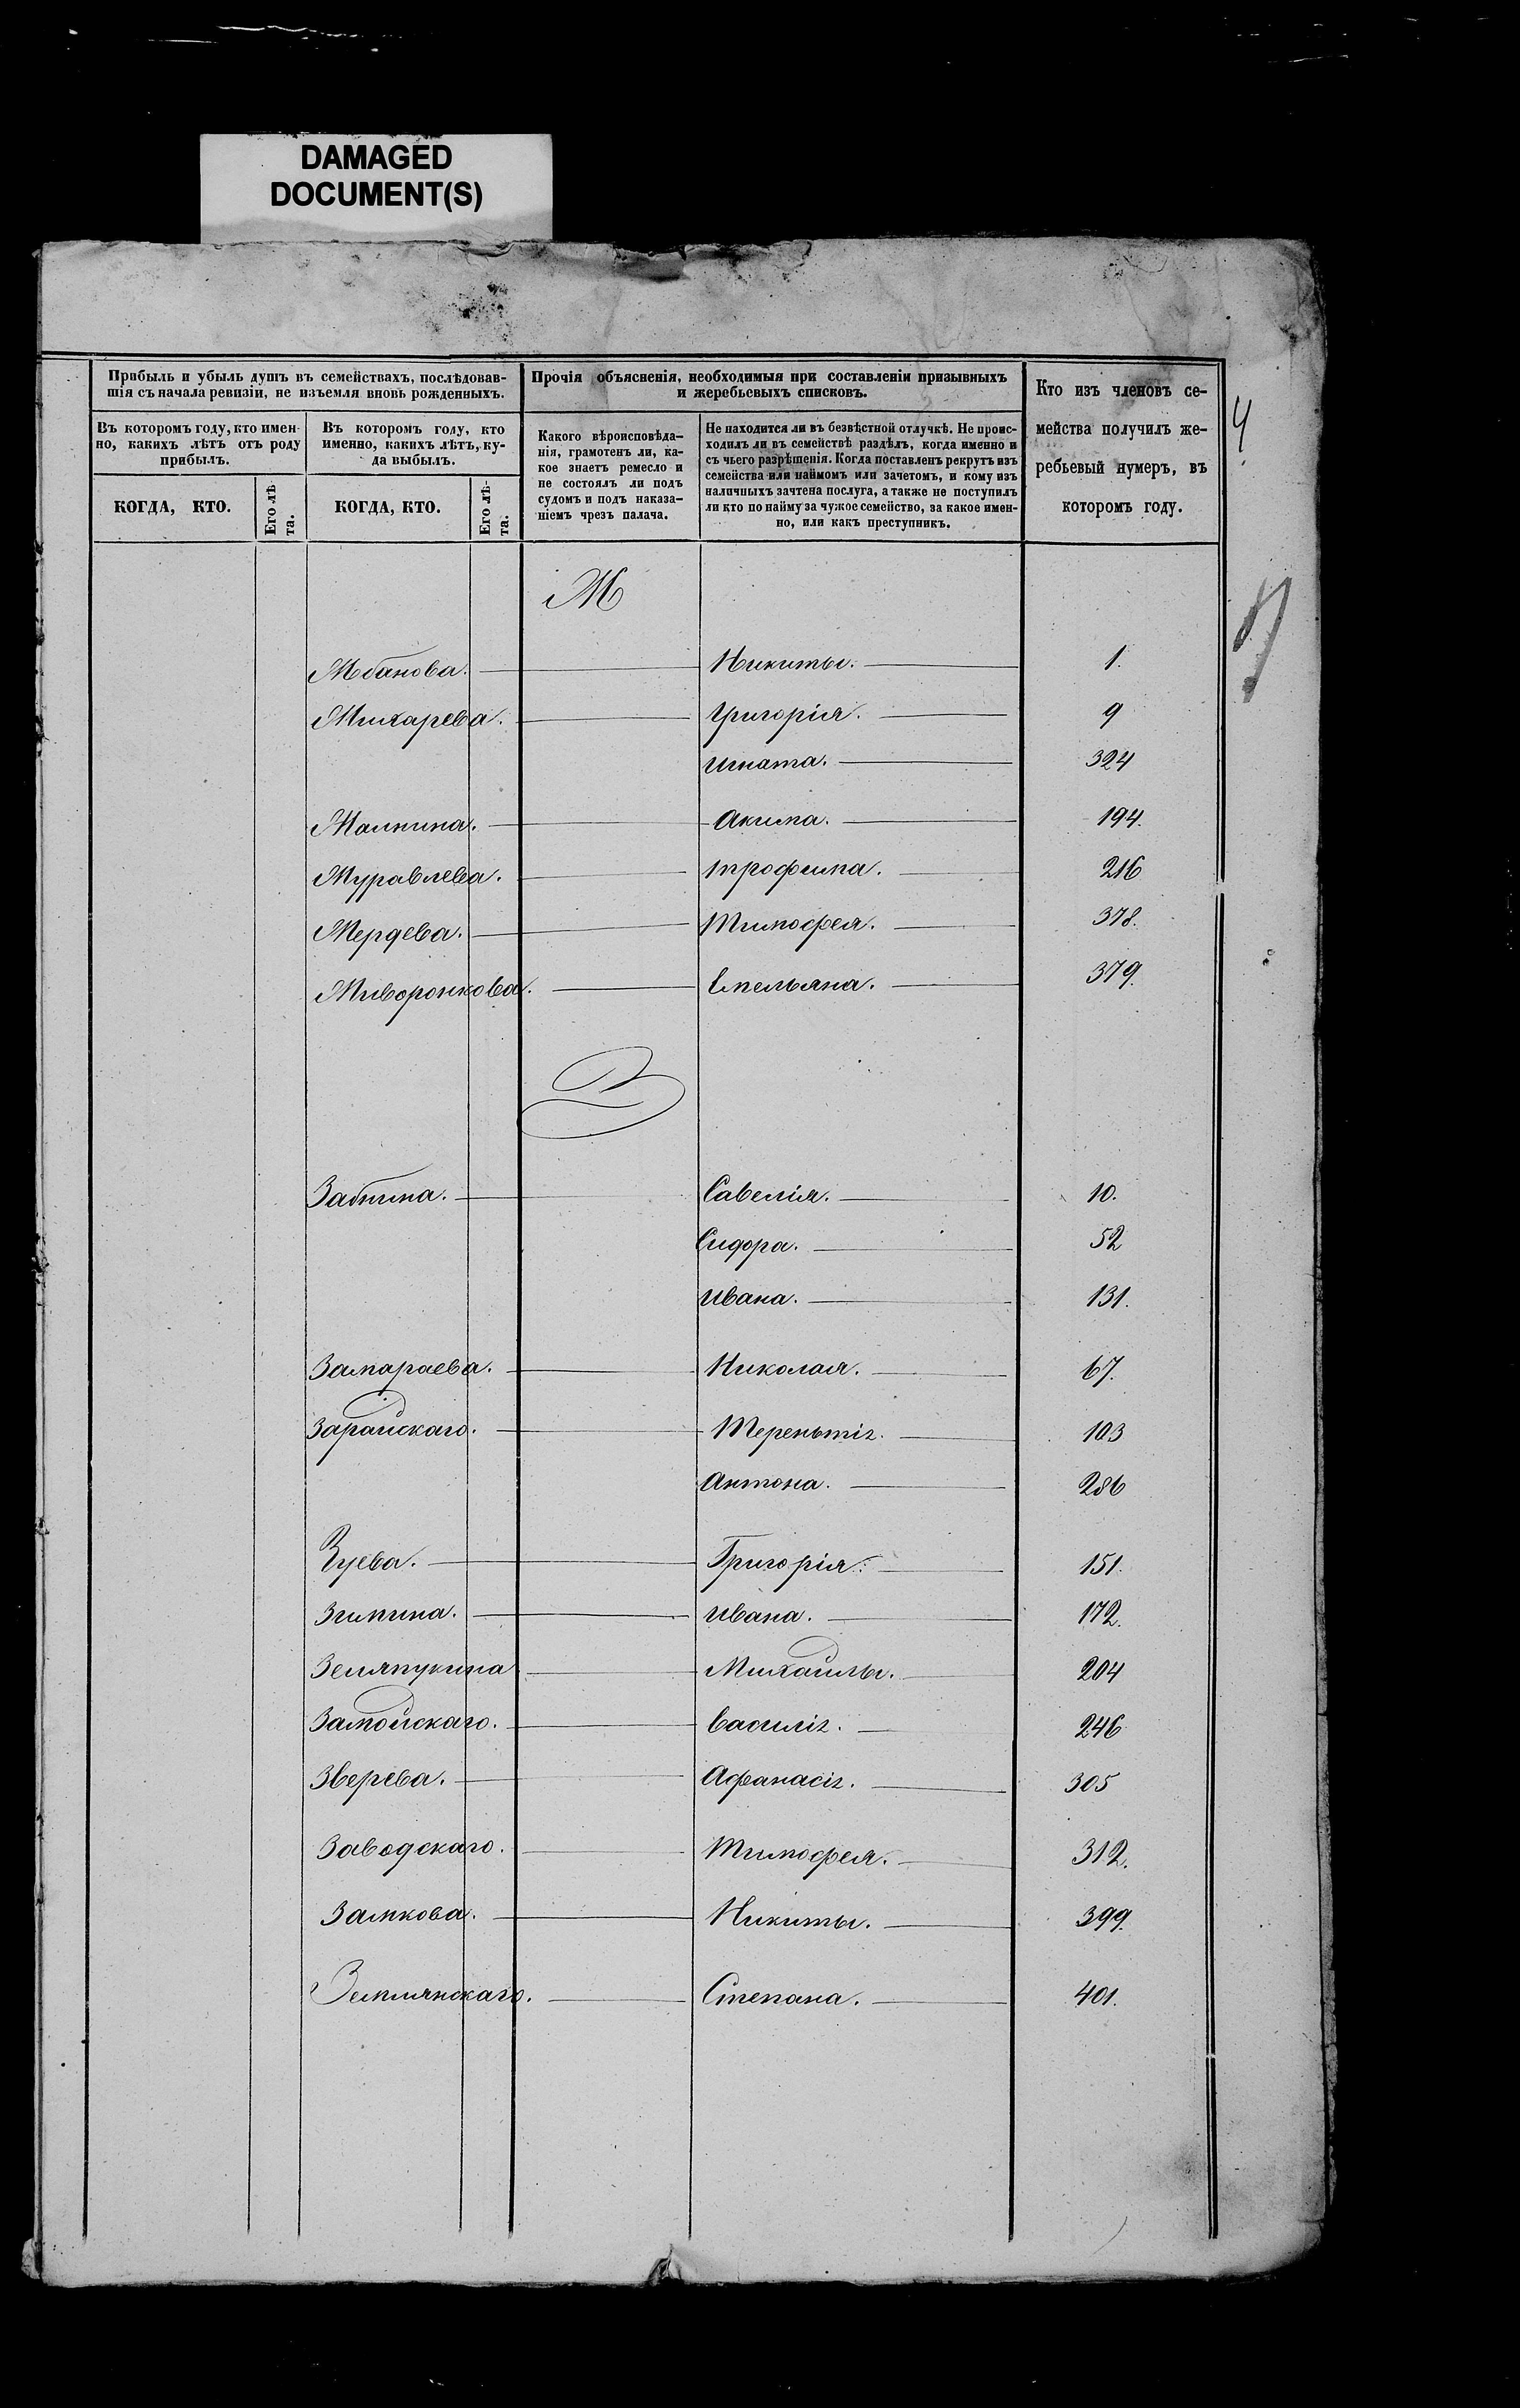 DAMAGED
DOCUMENT(S)
Прибыль и убыль душъ въ семействахъ, послѣдовав-
шія съ начала ревизіи, не изъемля вновь рожденныхъ.
Прочія объясненія, необходимыя при составленіи призывныхъ
и жеребьевыхъ списковъ.
Кто изъ членовъ се-
мейства получилъ же-
ребьевый нумеръ, въ
которомъ году.
Въ которомъ году, кто имен-
но, какихъ лѣтъ отъ роду
прибылъ.
Въ которомъ году, кто
именно, какихъ лѣтъ, ку-
да выбылъ.
Какого вѣроисповѣда-
нія, грамотенъ ли, ка-
кое знаетъ ремесло и
не состоялъ ли подъ
судомъ и подъ наказа-
ніемъ чрезъ палача.
Не находится ли въ безвѣстной отлучкѣ. Не проис-
ходилъ ли въ семействѣ раздѣлъ, когда именно и
съ чьего разрѣшенія. Когда поставленъ рекрутъ изъ
семейства или наймомъ или зачетомъ, и кому изъ
наличныхъ зачтена послуга, а также не поступилъ
ли кто по найму за чужое семейство, за какое имен-
но, или какъ преступникъ.
КОГДА, КТО.
Его лѣ-
та.
КОГДА, КТО.
Его лѣ-
та.
4
Ж
Жбанова. Никиты. 1.
Жихарева. Григорія. 9
Игната. 324
Жалнина. Акима. 194.
Журавлева. Трофима. 216
Жердева. Тимофея. 378.
Живоронкова. Емельяна. 379.
З
Забнина. Савелія. 10.
Сидора. 52
Ивана. 131.
Замараева. Николая. 67.
Зарайскаго. Терентія. 103
Антона. 286
Зуева. Григорія. 151.
Зимина. Ивана. 172.
Михайлы. 204
Замойскаго. Василія. 246
Зверева. Афанасія. 305
Заводскаго. Тимофея. 312.
Замкова. Никиты. 399.
Землянскаго. Степана. 401.